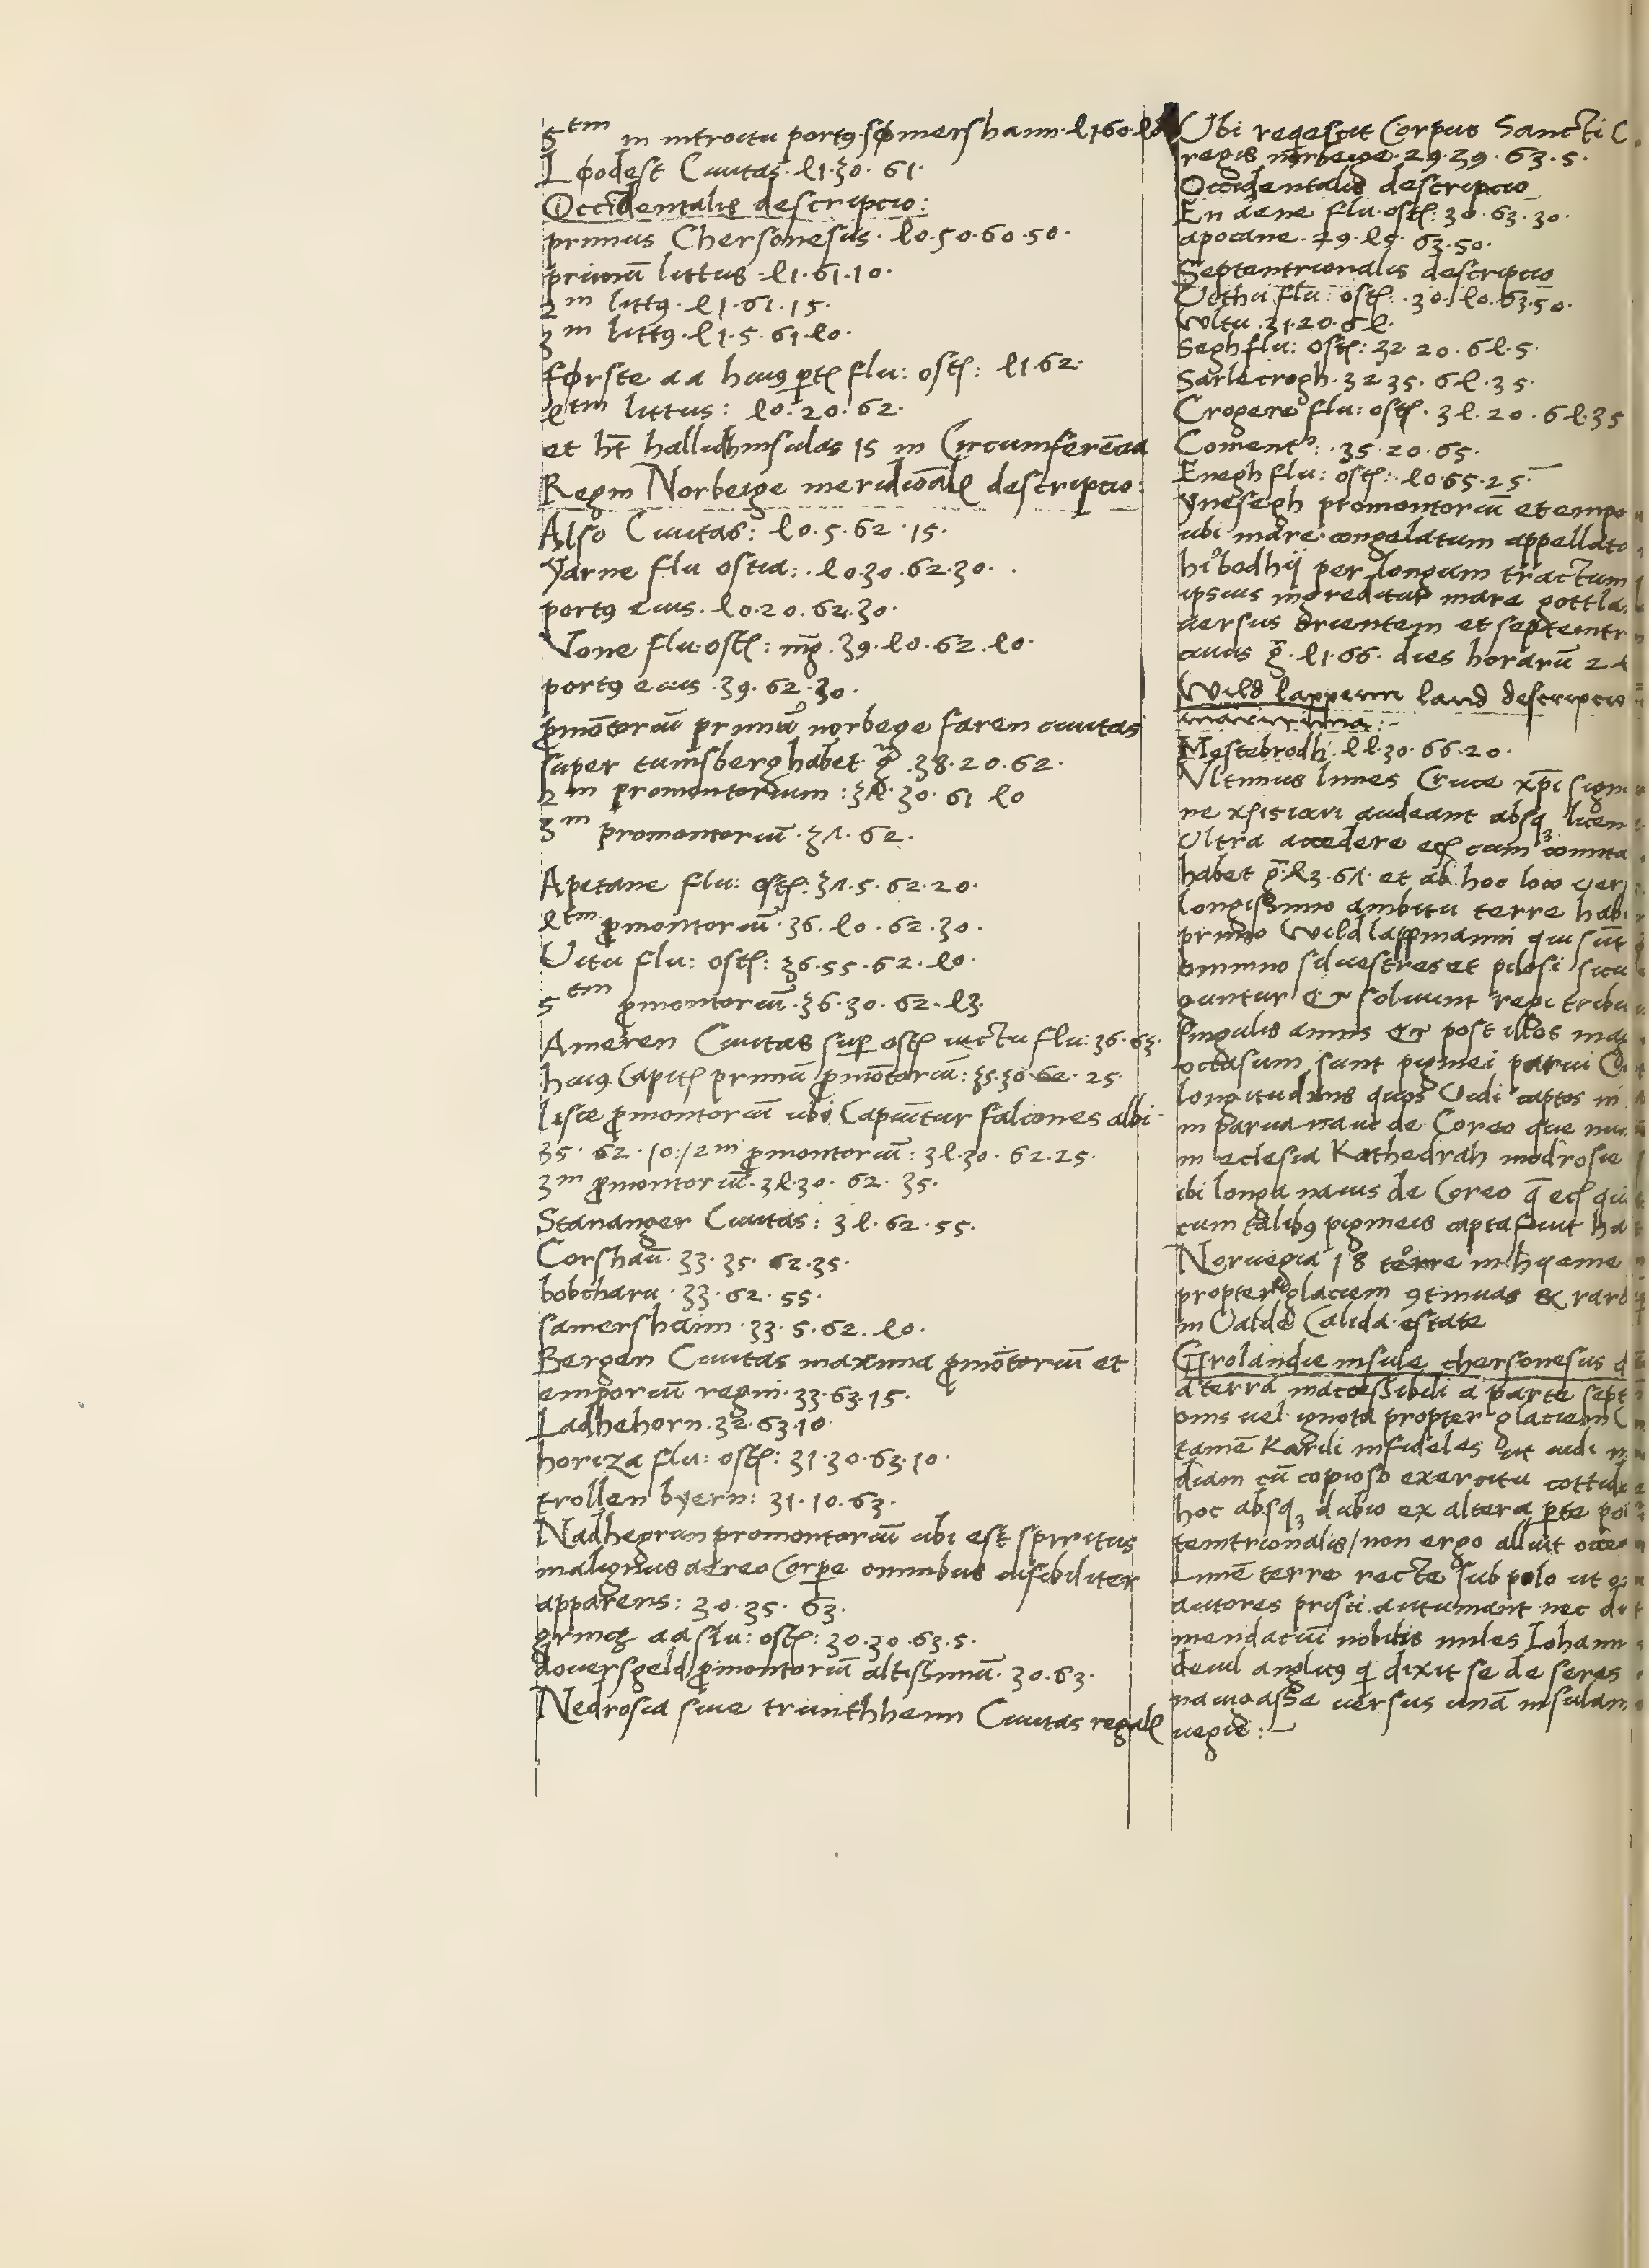 5tm in introitu portꝰ sømershann·ꝉ1·60·ꝉ0
Lødest Ciuitas·ꝉ1·30·61·
Occidentalis descripcio:
primus Chersonesus·ꝉ0·50·60·50·
primū littus·ꝉ1·61·10·
2m littꝰ·ꝉ1·61·15·
3m littꝰ·ꝉ1·5·61·ꝉ0·
første aa huiꝰ ꝑtꝭ flu: ostꝭ: ꝉ1·62·
ꝉtm littus: ꝉ0·20·62·
et ht̄ insulas 15 in Circumferēcia
Regni Norbeige meridiōalꝭ descripcio:
Also Ciuitas: ꝉ0·5·62·15·
Yarne flu ostia: ·ꝉ0·30·62·30·
portꝰ eius·ꝉ0·20·62·30·
Vone flu:ostꝭ: ·39·ꝉ0·62·ꝉ0·
portꝰ eius·39·62·30·
ꝓmōtoriū primū norbege faren ciuitas
super tunsberg habet ·38·20·62·
2m promontorium: 3Λ·30·61 ꝉ0
3m promontoriū·3Λ·62·
Apitane flu: ostꝭ: 3Λ·5·62·20·
ꝉtm ꝓmontoriū·36·ꝉ0·62·30·
Uitu flu: ostꝭ: 36·55·62·ꝉ0·
5tm ꝓmontoriū·36·30·62·ꝉ3·
Ameren Ciuitas suꝑ ostꝭ uictu flu: 36·63·
huiꝰ Capitꝭ primū ꝓmōtoriū: 35·30·62·25·
lisce ꝓmontoriū ubi Capiūtur falcones albi
35·62·10:/2m ꝓmontoriū: 3ꝉ·30·62·25·
3m ꝓmontoriū·3ꝉ·30·62·35·
Stananger Ciuitas: 3ꝉ·62·55·
Corshaū·33·35·62·35·
bobcharu·33·62·55·
samershann·33·5·62·ꝉ0·
Bergen Ciuitas maxima ꝓmōtoriū et
emporiū regni·33·63·15·
Ladhehorn·32·63·10
horiza flu: ostꝭ: 31·30·63·10·
trollen byern: 31·10·63·
Nadhegrun promontoriū ubi est spiritus
malignus aereo Corꝑe omnibus uisibiliter
apparens: 30·35·63·
aa flu: ostꝭ: 30·30·63·5·
douersgeld ꝓmontoriū altissimū·30·63·
Nedrosia siue trunthhenn Ciuitas regalꝭ
Ubi requescit Corpus Sancti
regis norbeige·29·39·63·5·
Occidentalis descripcio
En dene flu·ostꝭ: 30·63·30·
apocane·29·ꝉ5·63·50·
Septentrionalis descripcio
Ucthu flu: ostꝭ: ·30·ꝉ0·63·50·
Wltu·31·20·6ꝉ·
Segh flu: ostꝭ: 32 20·6ꝉ·5·
Sarlecrogh·32 35·6ꝉ·35·
Crogere flu: ostꝭ·3ꝉ·20·6ꝉ·35
Coment ·35·20·65·
Enegh flu: ostꝭ: ꝉ0·65·25
Ynesegh promontoriū et empo
ubi mare congelatum appellato
per longum tractum
ipsius ingreditur mare gottla
uersus orientem et septemtr
cuius ·ꝉ1·66· dies horarū 2ꝉ
Wild lappenn land descripcio
Mestebrodh·ꝉꝉ·30·66·20·
Vltimus limes Cruce xp̄i sign
ne xpisiani audeant absqꝫ licen
Ultra accedere eciꝭ cum comita
habet ꝉ3·6Λ· et ab hoc loco uer
longissimo ambitu terre hab
primo Wildlappmanni qui sūt
omnino siluestres et pilosi sicu
guntur & soluunt regi tribu
singulis annis & post illos ma
occasum sunt pigmei parui
longitudinis quos Uidi captos in
in parua naui de Coreo que nu
in eclesia Kathedrali
ibi longa nauis de Coreo
cum talibꝰ pigmeis capta fuit ha
Noruegia 18
propter glaciem ꝯtinuas & raro
in Ualde Calida estate
Grolandie insule chersonesus
a terra inaccessibili a parte sept
oms uel ignota propter glaciem
tamē Kareli infideles ut uidi
cū copioso exercitu cottidi
hoc absqꝫ dubio ex altera ꝑte po
temtrionalis/non ergo alluit oce
Limē terre recte sub polo ut
autores prisci autumant nec
mendaciū nobilis miles Iohann
deuil anglicꝰ qi dixit se de seres
nauigasse uersus unā insulam
uegie:—